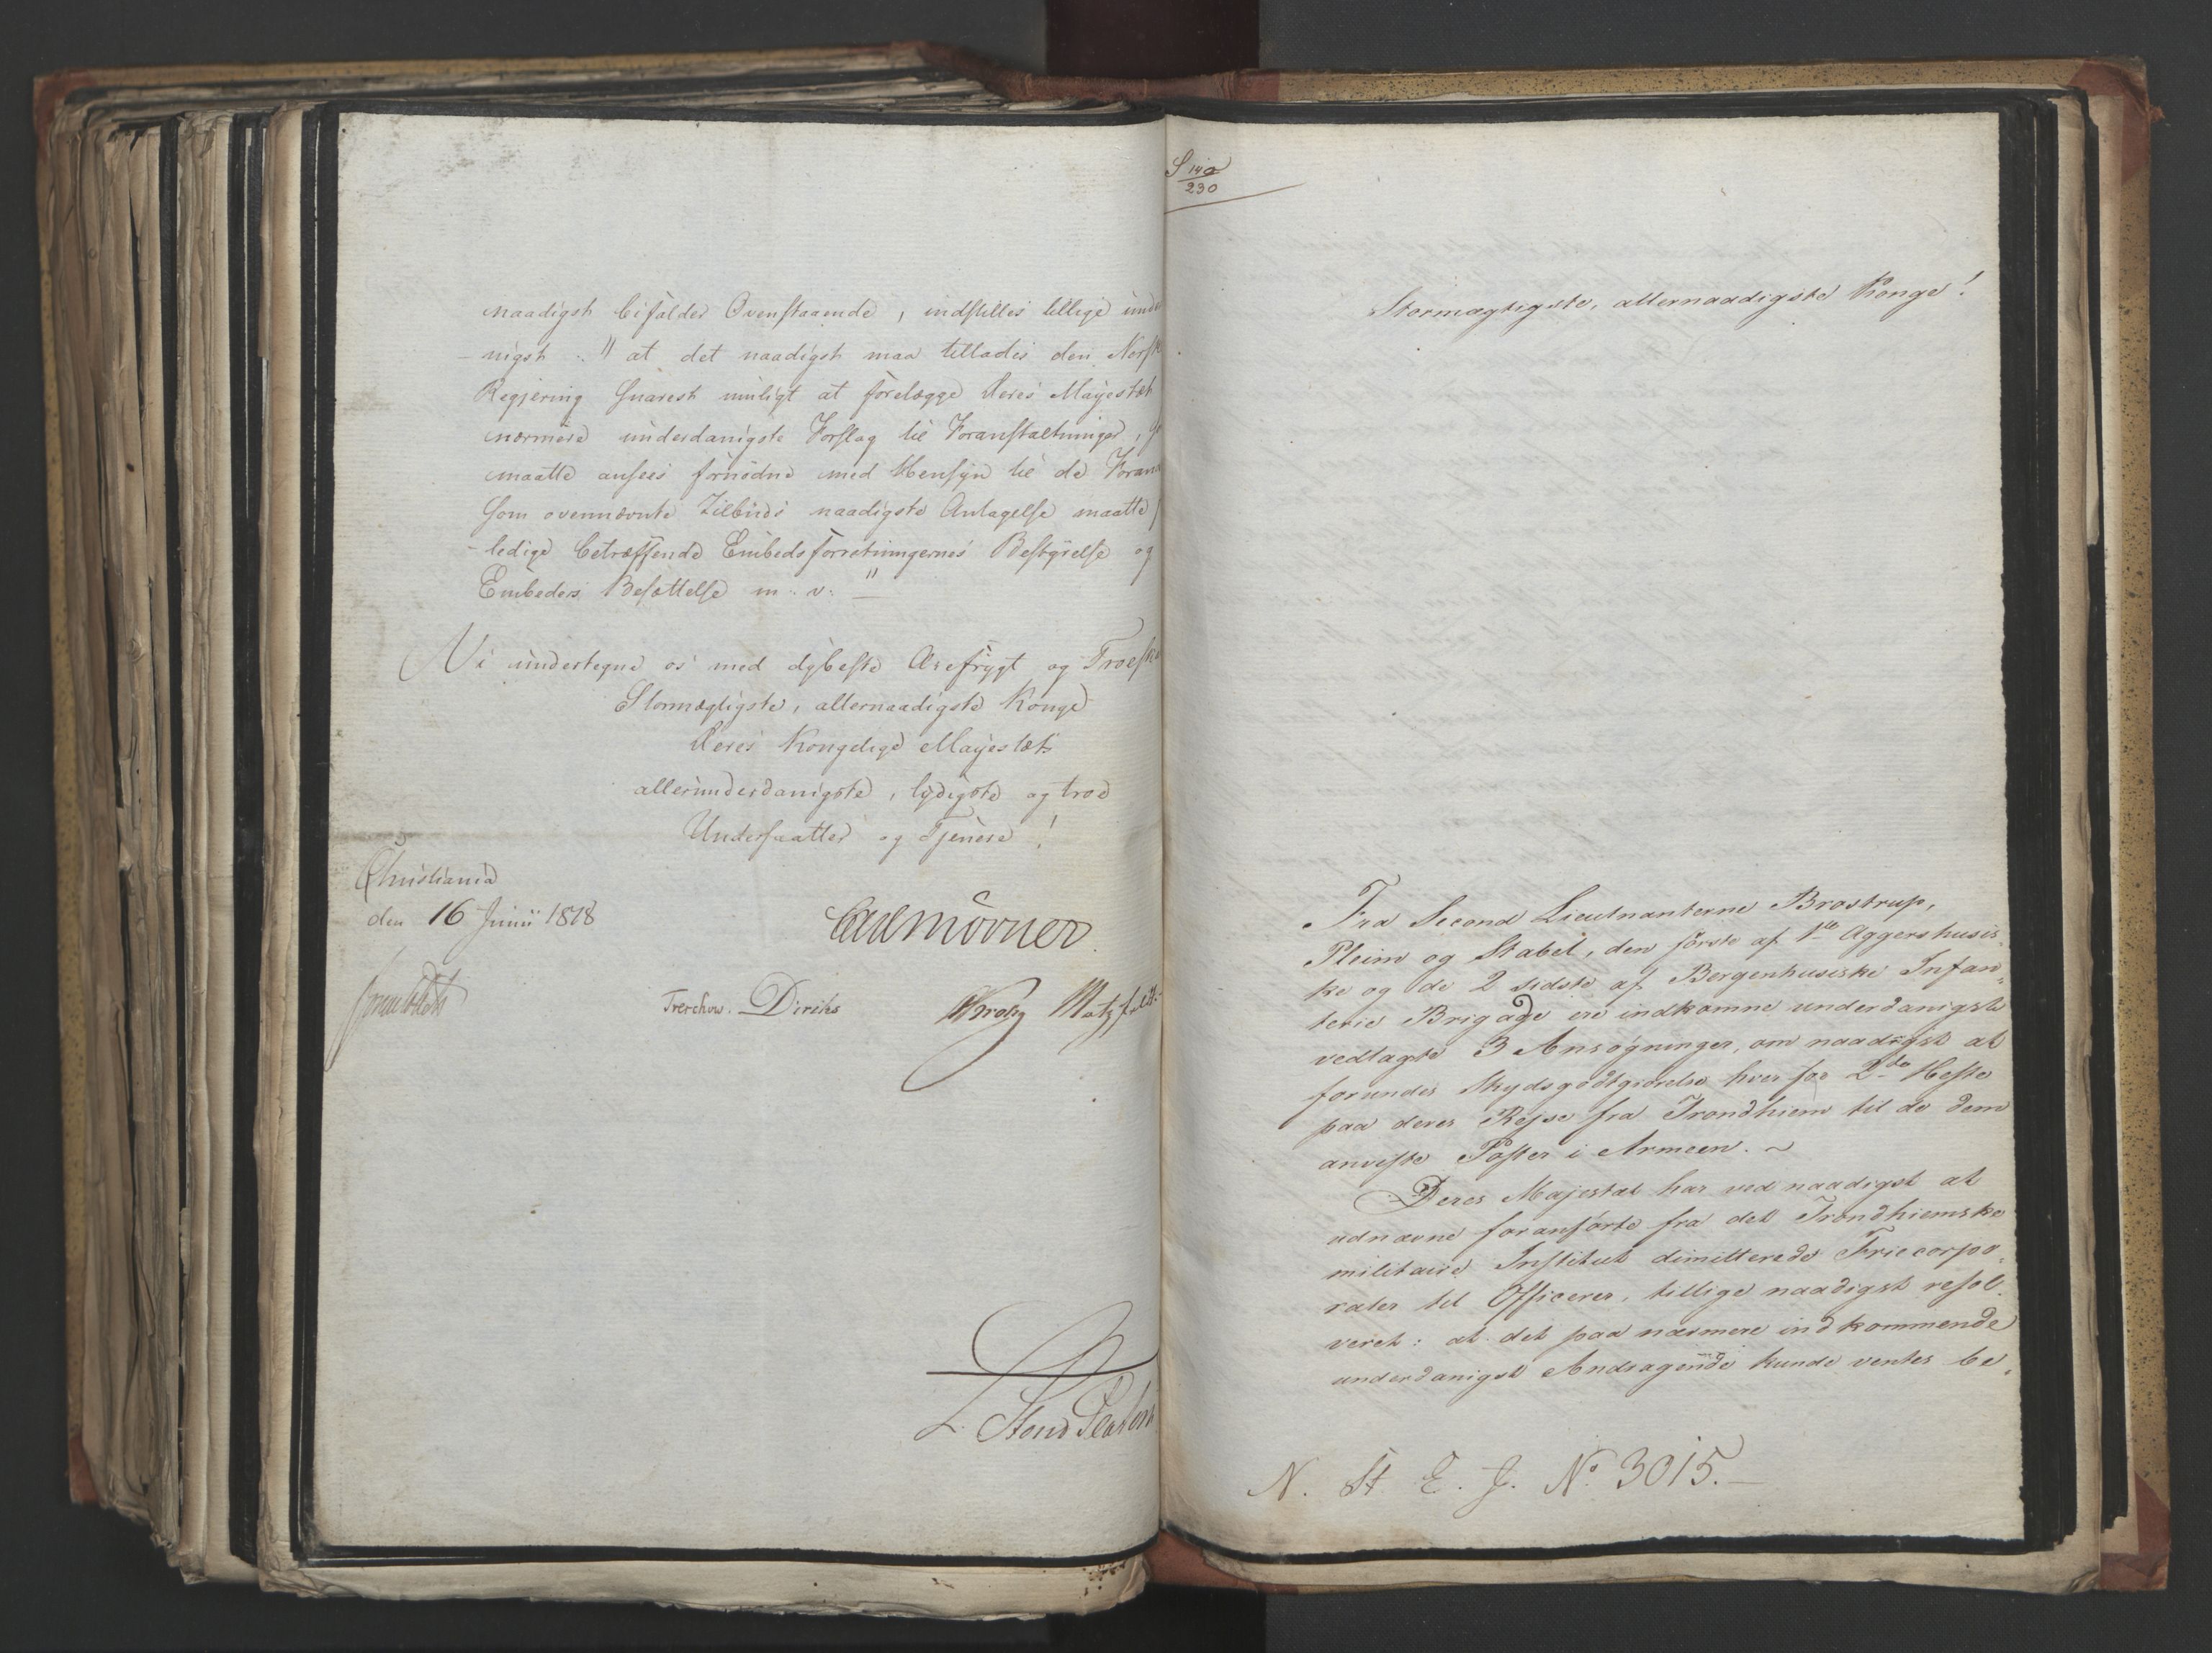 naadigst bifalder Ovenstaaende, indstilles tillige unde
-nigst: " at det naadigst maa tillades den Norske
Regjering snarest muligt at forelægge Deres Mayestæt
nærmere underdanigste Forslag til Foranstaltninger,
maatte ansees fornødne med Hensyn til de Foran
som ovennævnte Tilbuds naadigste Antagelse maatte
-ledige betræffende Embedsforretningernes Bestyrelse og
Embeders Besættelse m: v: "
Vi undertegne os med dybeste Ærefrygt og Troeska
Stormægtigste, allernaadigste Konge
Deres Kongelige Mayestæts
allerunderdanigste, lydigste og troe
Undersaatter og Tjenere!
Christiania
den 16 Junii 1818
Mörner
Treschow. Diriks Krohg Motzfeldt
S 140
230
Stormægtigste, allernaadigste Konge!
Fra Second Lieutnanterne Brostrup,
Pleim og Stabel, den første af 1ste Aggershusis-
ke og de 2 sidste af Bergenhusiske Infan-
terie Brigade ere indkomne underdanigst
vedlagte 3 Ansøgninger, om naadigst at
forundes Skydsgodtgiørelse hver for 2de Heste
paa deres Rejse fra Trondhiem til de dem
anviste Poster i Armeen. ~
Deres Majestæt har ved naadigst at
udnævne foranførte fra det Trondhiemske
militaire Institut dimitterede Friecorpo-
raler til Officerer, tillige naadigst resol-
veret: at det paa nærmere indkommende
underdanigst Andragende kunde ventes be-
N. St. E. J. No 3015.